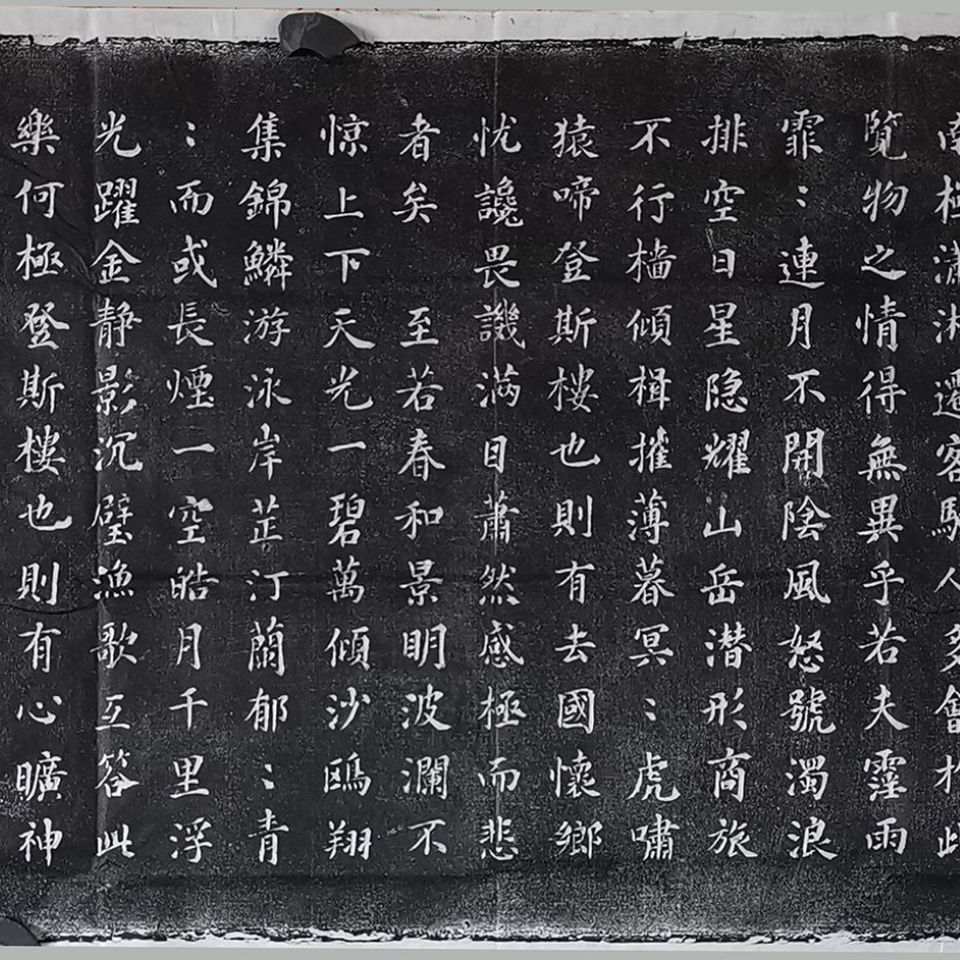 南極瀟湘遷客騷人多會於此
覽物之情得無異乎若夫霪雨
霏：連月不開陰風怒號濁浪
排空日星隐耀山岳潜形商旅
不行檣傾楫摧薄暮冥：虎嘯
猿啼登斯樓也則有去國懷鄉
忧讒畏譏满日蕭然感極而悲
者矣　至若春和景明波瀾不
惊上下天光一碧萬傾沙鷗翔
集錦鱗游泳岸芷汀蘭郁：青
：而或長煙一空皓月千里浮
光躍金静影沉璧漁歌互答此
樂何極登斯樓也則有心曠神